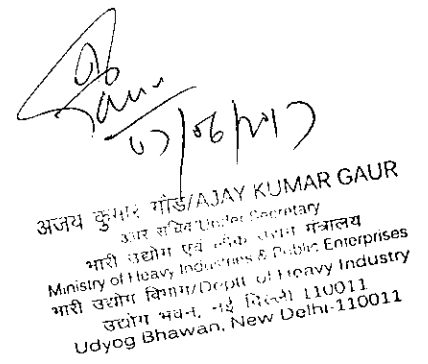 07/06/2017
अजय कुमार गौड/AJAY KUMAR GAUR
अवर सचिव/Under Secretary
भारी उद्योग एवं लोक उद्यम मंत्रालय
Ministry of Heavy Industries & Public Enterprises
भारी उद्योग विभाग/Deptt of Heavy Industry
उद्योग भवन, नई दिल्ली 110011
Udyog Bhawan, New Delhi-110011